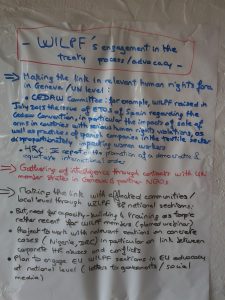 - WILPF's engagement in the
treaty process / advocacy -
⇒ Making the link in relevant human rights fora
in Geneva / UN level :
• CEDAW Committee : for example, WILPF raised in
July 2015 the issue of ETOs of Spain regarding the
Cedaw Convention, in particular the impacts of sale of
arms in countries with serious human rights violations, as
well as practices of Spanish companies in the textile sector
disproportionately impacting women workers
• HRC : IE report the promotion of a democratic &
equitable international order
⇒ Gathering of intelligence through contacts with UN
member states in Geneva & partner NGOs
⇒ Making the link with affected communities /
local level through WILPF national sections,
• But, need for capacity-building & training as topic
rather recent for WILPF members (planned webinar)
• Project to work with relevant sections on concrete
cases (Nigeria, DRC) in particular on link between
corporate HR abuses and conflicts
• Plan to engage EU WILPF sections in EU advocacy
at national level (letters to governments / social
media)